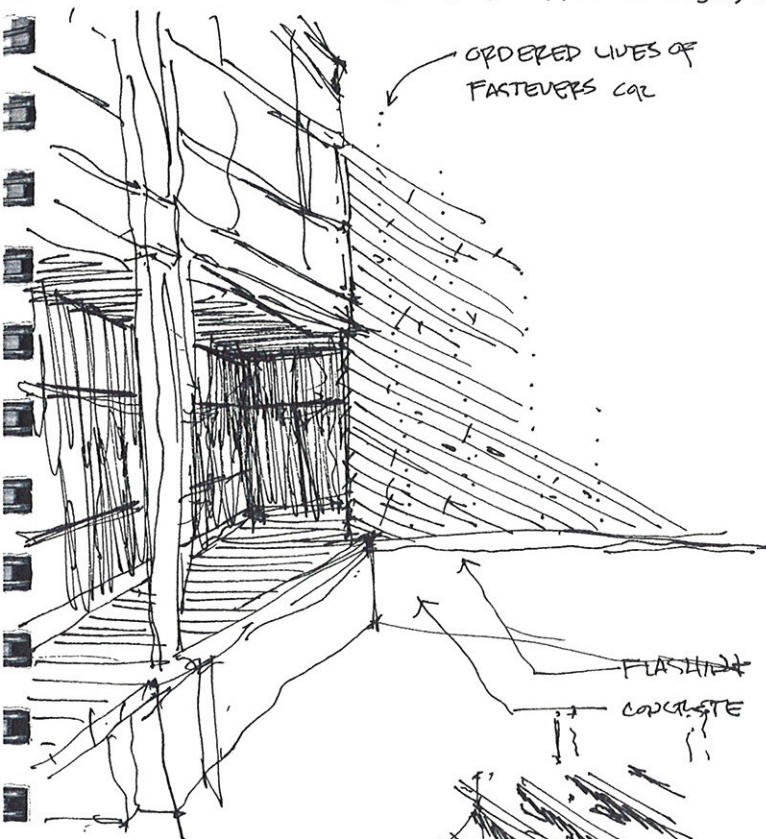 ORDERED LINES OF
FASTENERS
FLASHING
CONCRETE